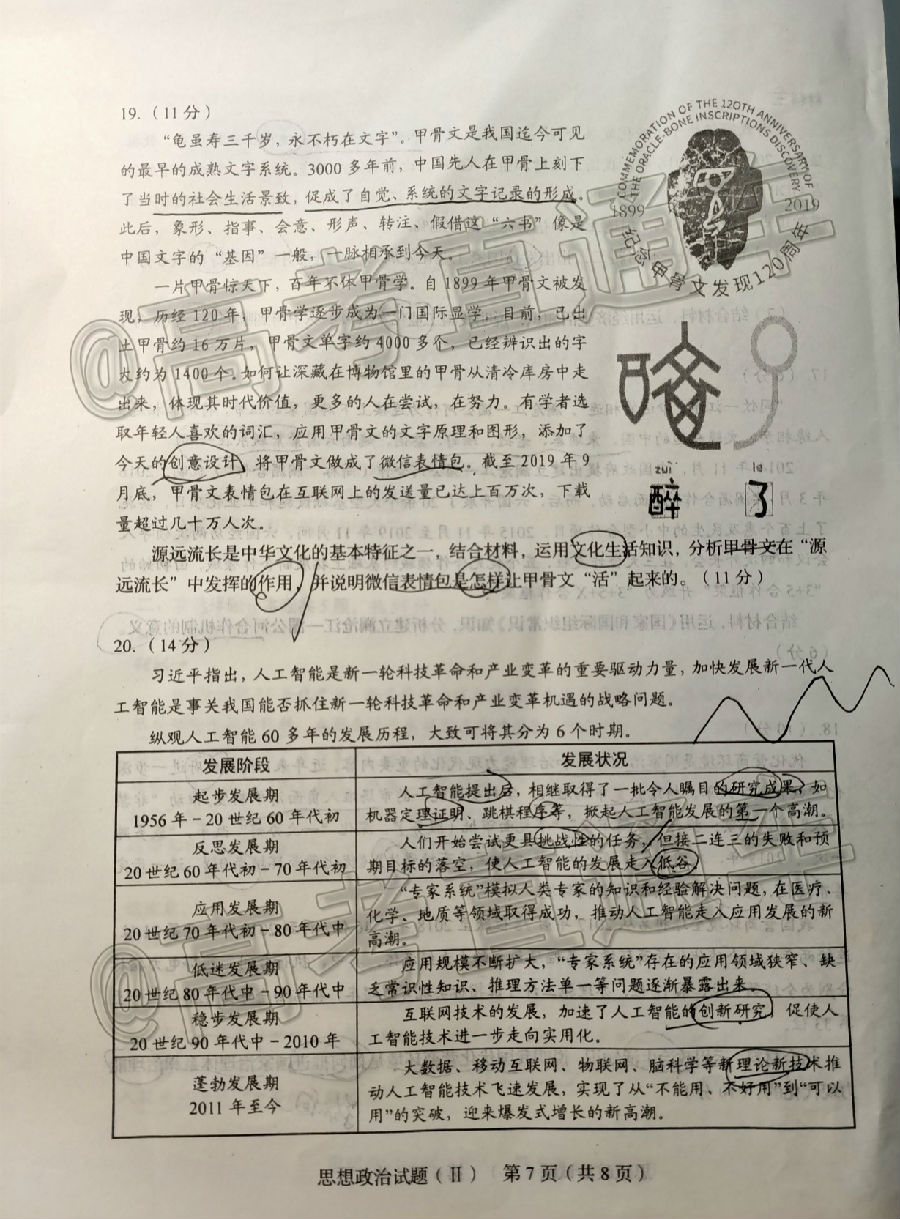 19.（11 分）
“龟虽寿三千岁，永不朽在文字”。甲骨文是我国迄今可见
的最早的成熟文字系统。3000 多年前，中国先人在甲骨上刻下
了当时的社会生活景致，促成了自觉、系统的文字记录的形成。
此后，象形、指事、会意、形声、转注、假借这“六书”像是
中国文字的“基因”一般，一脉相承到今天。
一片甲骨惊天下，百年不休甲骨学。自 1899 年甲骨文被发
现，历经 120 年，甲骨学逐步成为一门国际显学。目前，已出
土甲骨约 16 万片，甲骨文单字约 4000 多个，已经辨识出的字
大约为 1400 个。如何让深藏在博物馆里的甲骨从清冷库房中走
出来，体现其时代价值，更多的人在尝试，在努力。有学者选
取年轻人喜欢的词汇，应用甲骨文的文字原理和图形，添加了
今天的创意设计，将甲骨文做成了微信表情包。截至 2019 年 9
月底，甲骨文表情包在互联网上的发送量已达上百万次，下载
量超过几十万人次。
COMMEMORATION OF THE 120TH ANNIVERSARY OF
THE ORACLE-BONE INSCRIPTIONS DISCOVERY
1899 2019
纪念甲骨文发现120周年
zuì le
醉 了
源远流长是中华文化的基本特征之一，结合材料，运用文化生活知识，分析甲骨文在“源
远流长”中发挥的作用，并说明微信表情包是怎样让甲骨文“活”起来的。（11 分）
20.（14 分）
习近平指出，人工智能是新一轮科技革命和产业变革的重要驱动力量，加快发展新一代人
工智能是事关我国能否抓住新一轮科技革命和产业变革机遇的战略问题。
纵观人工智能 60 多年的发展历程，大致可将其分为 6 个时期。
发展阶段 发展状况
起步发展期
1956 年－20 世纪 60 年代初
人工智能提出后，相继取得了一批令人瞩目的研究成果，如
机器定理证明、跳棋程序等，掀起人工智能发展的第一个高潮。
反思发展期
20 世纪 60 年代初－70 年代初
人们开始尝试更具挑战性的任务，但接二连三的失败和预
期目标的落空，使人工智能的发展走入低谷。
应用发展期
20 世纪 70 年代初－80 年代中
“专家系统”模拟人类专家的知识和经验解决问题，在医疗、
化学、地质等领域取得成功，推动人工智能走入应用发展的新
高潮。
低迷发展期
20 世纪 80 年代中－90 年代中
应用规模不断扩大，“专家系统”存在的应用领域狭窄、缺
乏常识性知识、推理方法单一等问题逐渐暴露出来。
稳步发展期
20 世纪 90 年代中－2010 年
互联网技术的发展，加速了人工智能的创新研究，促使人
工智能技术进一步走向实用化。
蓬勃发展期
2011 年至今
大数据、移动互联网、物联网、脑科学等新理论新技术推
动人工智能技术飞速发展，实现了从“不能用、不好用”到“可以
用”的突破，迎来爆发式增长的新高潮。
思想政治试题（Ⅱ） 第 7 页（共 8 页）
@高考直通车
@高考直通车